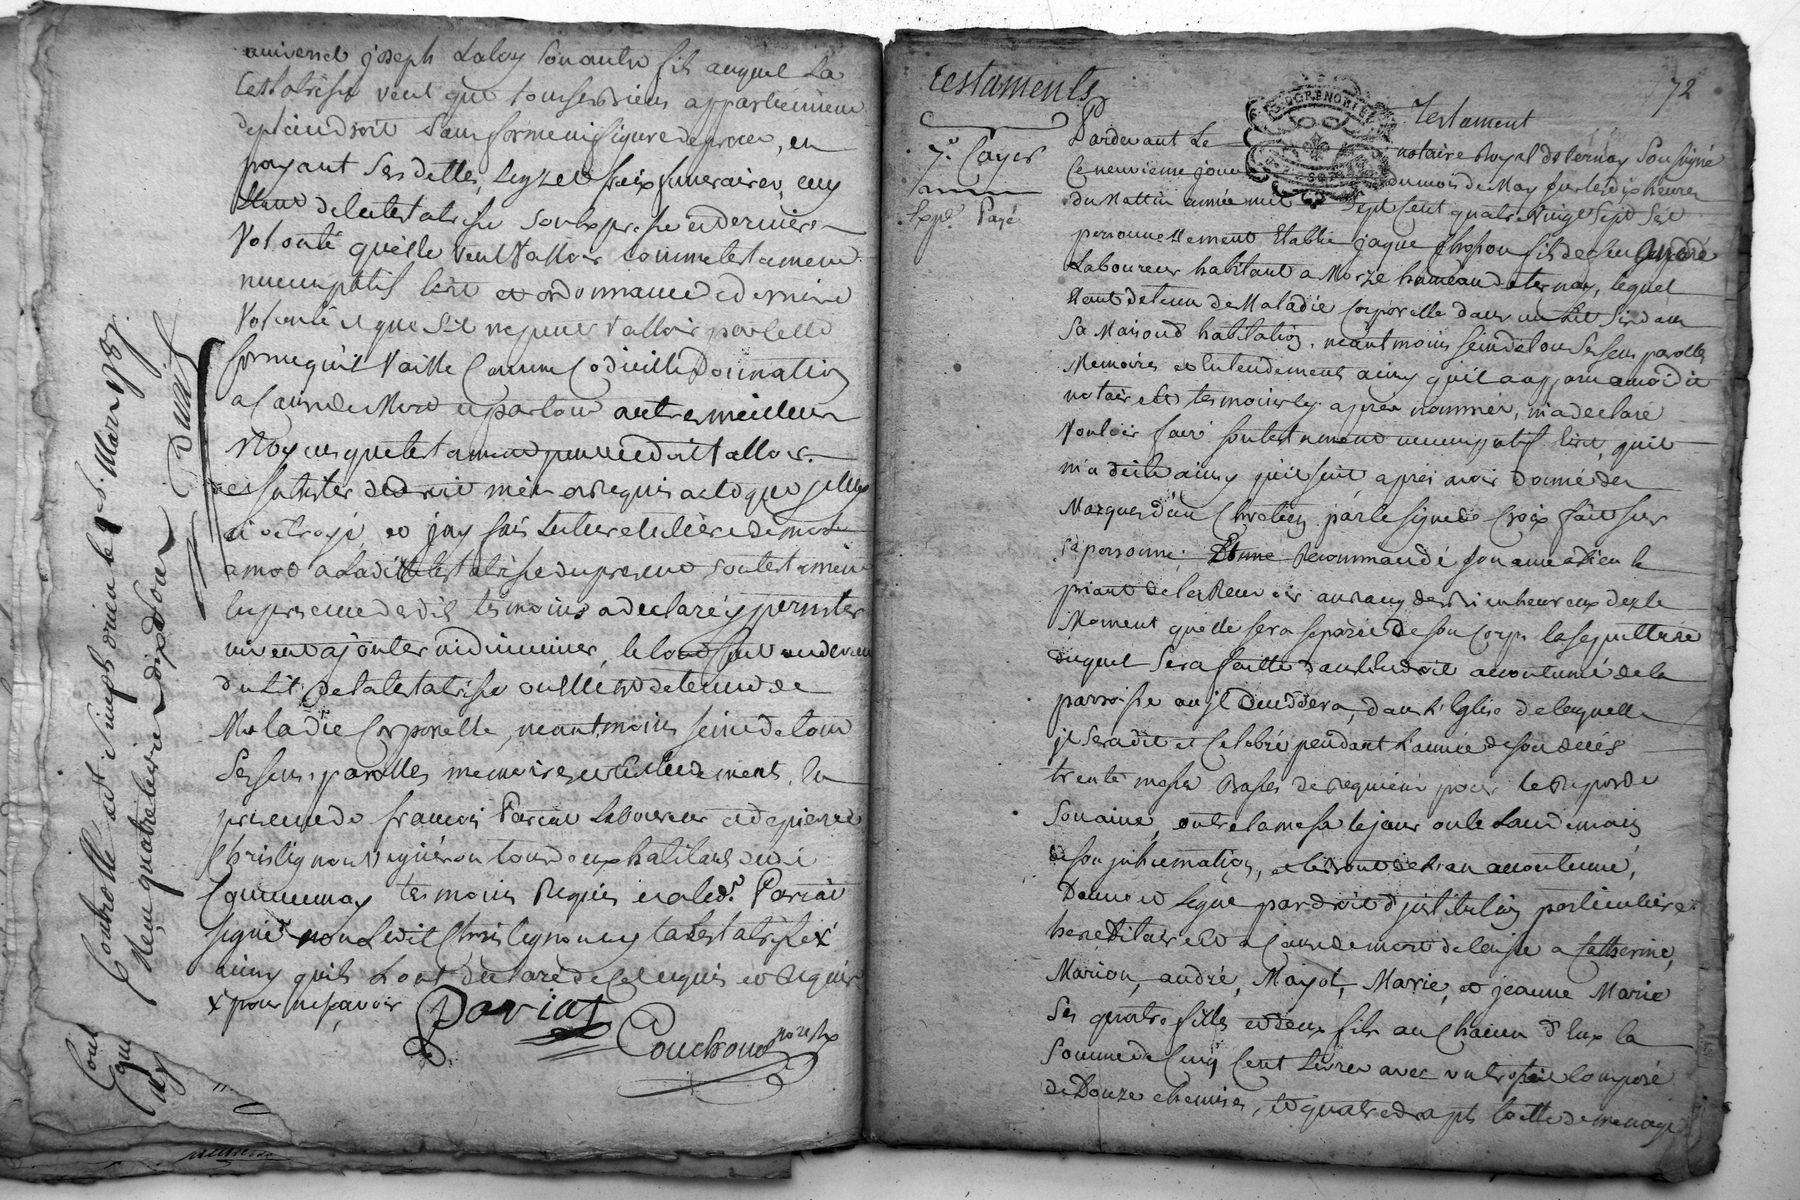 universel joseph Laloy son autre fils auquel la
testatrise veut que tous ses biens appartiennent
de plein droit sans forme ni figure de proces, en
payant ses dettes, legz et fraix funeraires,
de la testatrise son expresse et derniere
Volonté qu'elle veut valloir comme testament
nuncupatif écrit et ordonnance de derniere
Volonté et que s'il ne peut valloir par cette
forme qu'il vaille Comme Codicille Donnation
a Cause de Mort et par tout autre meilleur
Moyen que testament peut et doit valloir
et subsister de droit m'en Requis acte que je luy
ai octroyé et j'ay fait lecture de mot
a mot a Ladite testatrise du present son testament
en presence desdits temoins a declaré y persister
ni veut ajouter ni diminuer, le tout fait au devant
du Lit de la testatrise detenue de
Maladie Corporelle, neantmoins seine de tous
ses sens, parolles memoires et Entendement, en
presence de francois Pariat Laboureur et de pierre
Christignon vigneron tous deux habitans dudit
Communay temoins Requis et led.t Pariat
signé non Ledit Christignon ny la testatrise x
ainsy qu'ils L'ont déclaré de Ce enquis et Requis
x pour ne sçavoir Pariat
Couchoud no.re
Controllé et insinué à vienne le 1.er Mars 1787.
Reçu quatre livres dix sous
testaments
7.e Cayer
Exp.é Payé
72
GROGRENOBLE
Testament
Pardevant Le notaire Royal de ternay Soussigné
Ce neuvieme jour du mois de May sur les dix heures
du Mattin année mil sept cent quatre vingt sept s'est
personnellement Etablie jaque fils de feu André
Laboureur habitant a Morze hameau de ternay, lequel
Etant detenu de Maladie Corporelle dans un Lit sis dans
Sa Maison d'habitation, neantmoins sein de tous ses sens parolles
Memoires et Entendement ainsy qu'il a apparu a moi dit
notaire et temoins cy apres nommés, m'a declaré
Vouloir faire son testament nuncupatif Ecrit, qu'il
m'a dicté ainsy qu'il suit, apres avoir Donné des
Marques d'un Chretien par le signe de Croix fait sur
sa personne, Recommandé son ame a dieu le
priant de la Recevoir au rang des Bienheureux dez le
Moment qu'elle sera separée de son Corps la sepulture
duquel Sera faitte dans L'endroit accoutumé de la
parroisse ou jl Deceddera, dans L'Eglise de laquelle
jl sera dit et Celebré pendant L'année de son decés
trente messes Basses de Requiem pour le Repos de
Son ame, outre la messe le jour ou le Landemain
de son jnhumation, accoutumé,
Donne et Legue par droit d'jnstitution particuliere
hereditaire et a Cause de mort delaisse a Catherine,
Marion, andré, Mayol, Marie, et jeanne Marie
Ses quatre filles et deux fils au Chacun d'Eux la
Somme de Cinq Cent Livres avec un trossel Composé
de Douze chemises, et quatre draps toille de menage